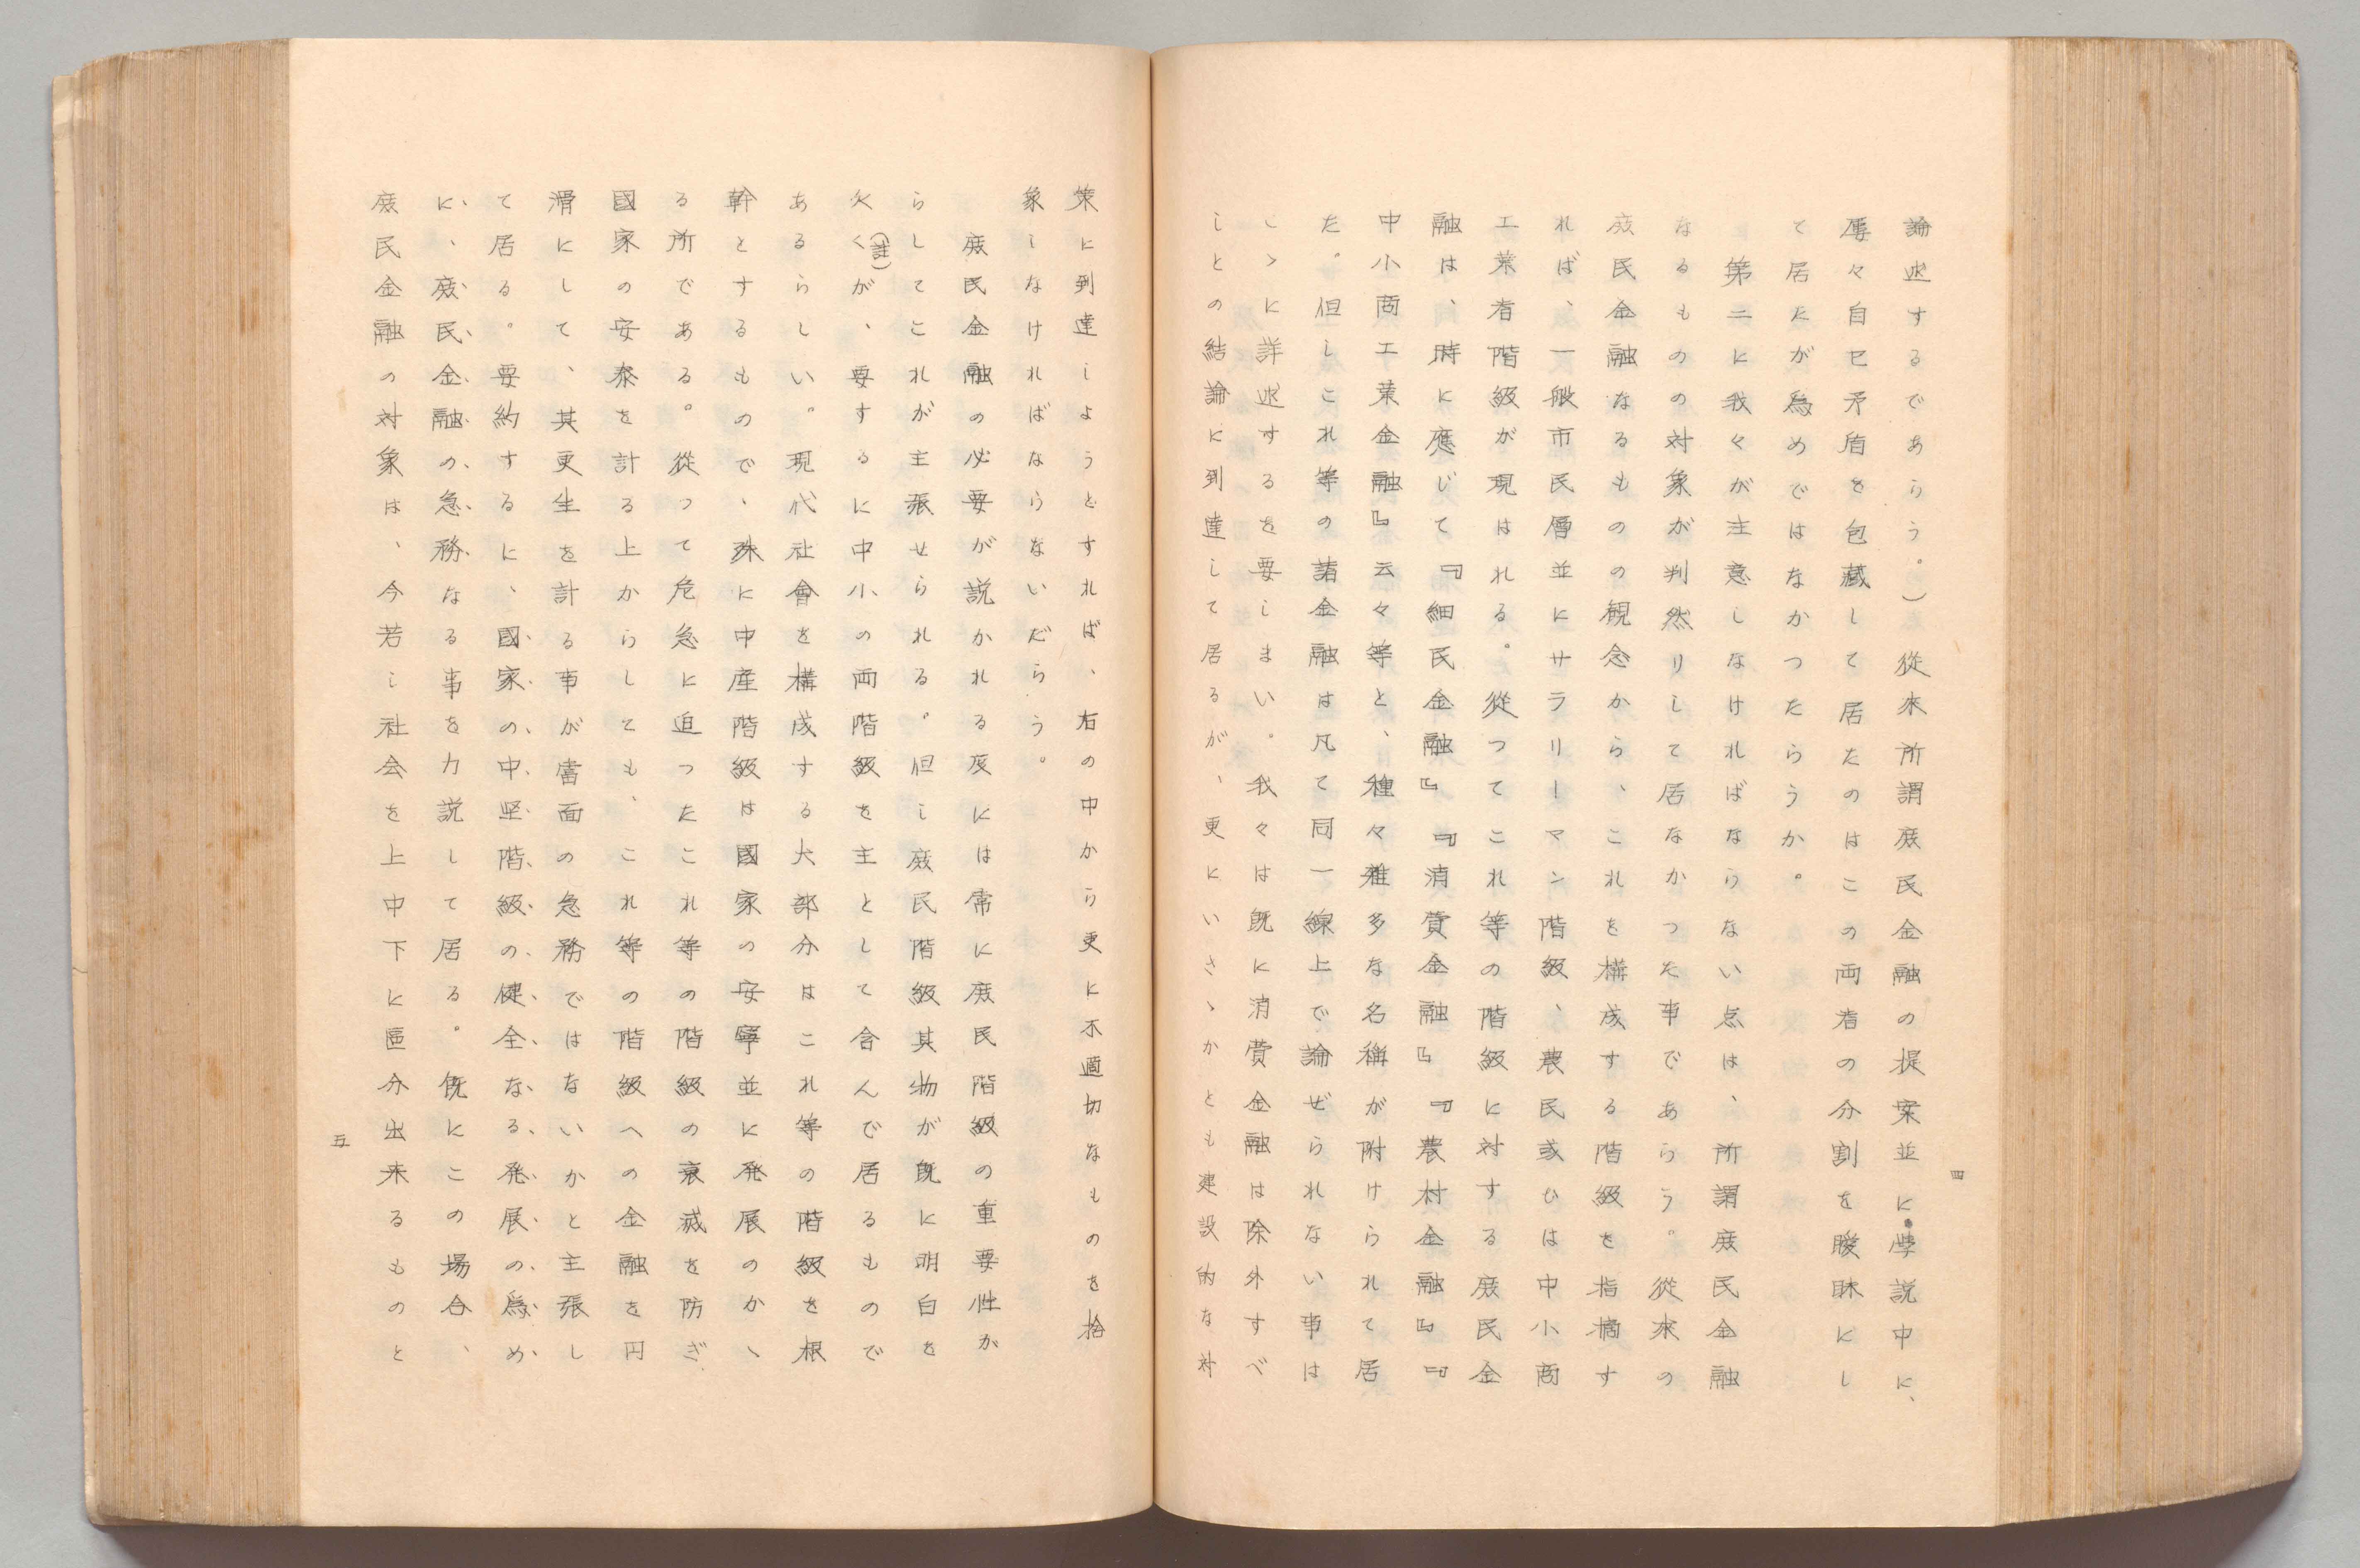 論述するであらう。）從来所謂庶民金融の提案並に學説中に、
屡々自已矛盾を包藏して居たのはこの両者の分割を曖昧にし
て居にが為めではなかつたらうか。
第二に我々が主意しなければならない点は、所謂庶民金融
なるものの対象が判然りして居なかつた事であらう。從来の
庶民金融なるものの観念から、これを構成する階級を指摘す
れば、一般市民層並にサラリーマン階級、農民或ひは中小商
工業者階級が現はれる。從つてこれ等の階級に対する庶民金
融は、時に應じて『細民金融』『消費金融』『農村金融』『
中小商工業金融』云々等と、種々雑多な名稱が附けられて居
た。但しこれ等の諸金融は凡て同一線上で論ぜられない事は
こゝに詳述するを要しまい。我々は既に消費金融は除外すべ
しとの結論に到達して居るが、更にいさゝかとも建設的な対
四
策に到達しようとすれば、右の中から更に不適切なものを捨
象しなければならないだらう。
庶民金融の必要が説かれる度には常に庶民階級の重要性が
らしてこれが主張せられる。但し庶民階級其物が既に明白を
欠く（註）が、要するに中小の両階級を主として含んで居るもので
あるらしい。現代社會を構成する大部分はこれ等の階級を根
幹とするもので、殊に中産階級は國家の安寧並に発展のかゝ
る所である。從って危急に迫ったこれ等の階級の衰滅を防ぎ
國家の安泰を計る上からしても、これ等の階級への金融を円
滑にして、其更生を計る事が當面の急務ではないかと主張し
て居る。要約するに、國家の中堅階級の健全なる発展の為め
に、庶民金融の急務なる事を力説して居る。既にこの場合、
庶民金融の対象は、今若し社会を上中下に區分出来るものと
五